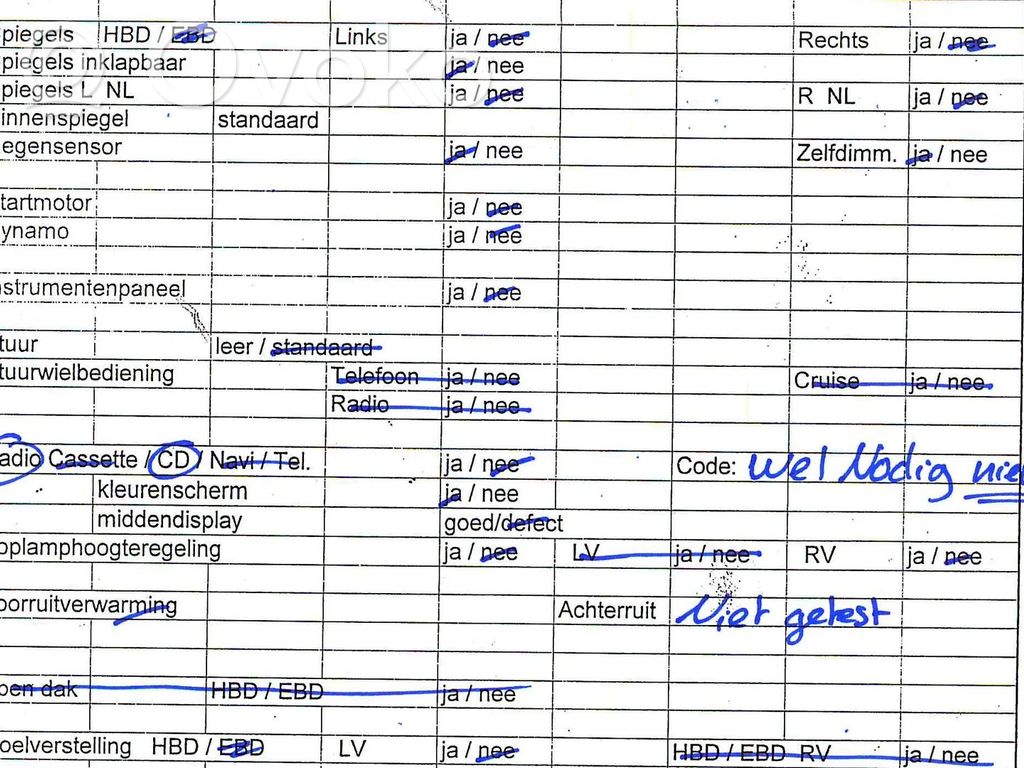 piegels HBD / EBD Links ja / nee Rechts ja / nee
piegels inklapbaar ja / nee
piegels L NL ja / nee R NL ja / nee
innenspiegel standaard
egensensor ja / nee Zelfdimm. ja / nee
tartmotor ja / nee
ynamo ja / nee
nstrumentenpaneel ja / nee
tuur leer / standaard
tuurwielbediening Telefoon ja / nee Cruise ja / nee
Radio ja / nee
adio Cassette / CD / Navi / Tel. ja / nee Code: Wel Nodig nie
kleurenscherm ja / nee
middendisplay goed/defect
oplamphoogteregeling ja / nee LV ja / nee RV ja / nee
oorruitverwarming Achterruit Niet getest
pen dak HBD / EBD ja / nee
oelverstelling HBD / EBD LV ja / nee HBD / EBD RV ja / nee
Ovoko